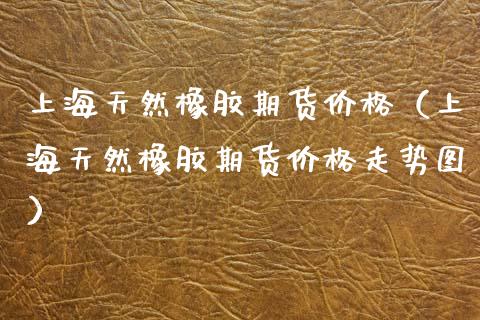 上海天然橡胶期货价格（上
海天然橡胶期货价格走势图
）